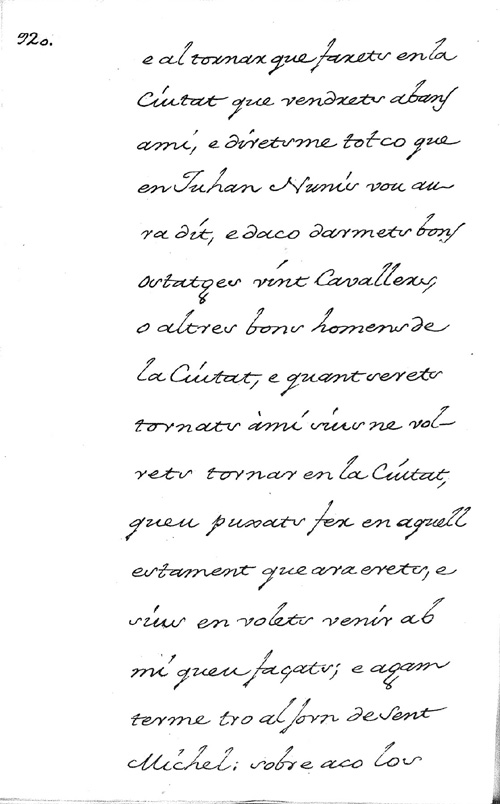 920.
e al tornar que farets en la
Ciutat que vendrets abans
ami, e diretsme tot co que
en Juhan Nunis vou au-
ra dit, e daco darmets bons
ostatges vint Cavallers,
o altres bons homens de
la Ciutat, e quant serets
tornats àmi sius ne vol-
rets tornar en la Ciutat,
queu puxats fer en aquell
estament que ara erets, e
sius en volets venir ab
mi queu façats; e açam
terme tro al forn de Sent
Michel: sobre aco los